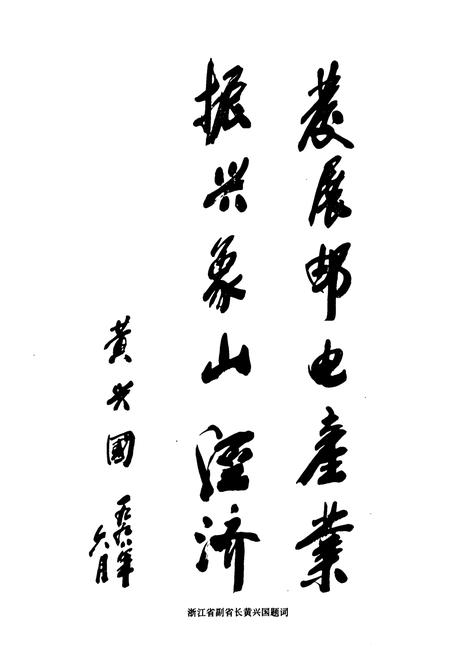 發展邮电產業
振兴象山經济
黄兴國
一九九八年
六月
浙江省副省长黄兴国题词